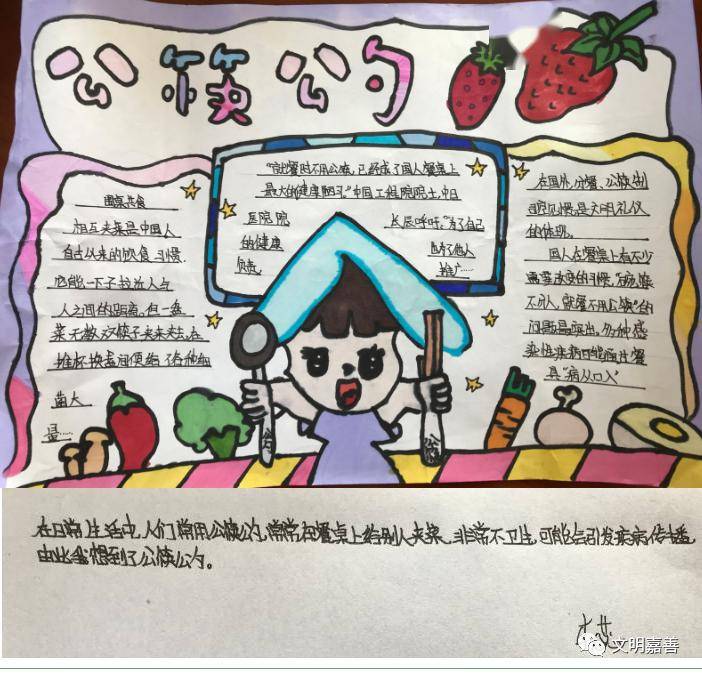 公筷公勺
围桌共食
相互夹菜是中国人
自古以来的饮食习惯.
它能一下子拉近人与
人之间的距离。但一盘
菜无数双筷子夹来夹去,在
推杯换盏间便给了各种细
菌大
量……
"就餐时不用公筷,已经成了国人餐桌上
最大的健康陋习."中国工程院院士,中日
医院院
的健康
负责,
长辰呼吁,"为了自己
也为了他人
推广……
在国外,分餐、公筷制
司空见惯,是文明礼仪
的体现。
国人在餐桌上有不少
需要改变的习惯,
不用公筷"的
问题最突出,多种感
染性疾病可能通过餐
具"病从口入"
公筷
在日常生活中,人们常用公筷公勺,常常在餐桌上给别人夹菜,非常不卫生,可能会引发疾病传播,
由此我想到了公筷公勺。
文明嘉善